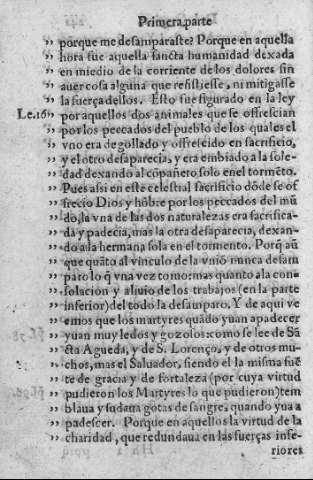 Primera parte
” porque me desamparaste? Porque en aquella
” hora fue aquella sancta humanidad dexada
” en medio de la corriente de los dolores sin
” auer cosa alguna que resistiesse, ni mitigasse
” la fuerça dellos. Esto fue figurado en la ley
Le.16 ” por aquellos dos animales que se offrescian
” por los peccados del pueblo de los quales el
” vno era degollado y offrescido en sacrificio,
” y el otro desaparecia, y era embiado a la sole-
” dad dexando al cõpañero solo en el tormẽto.
” Pues assi en este celestial sacrificio dõde se of
” frecio Dios y hõbre por los peccados del mũ
” do, la vna de las dos naturalezas era sacrifica-
” da y padecia, mas la otra desaparecia, dexan-
” do a la hermana sola en el tormento. Porq̃ aũ
” que quãto al vinculo de la vniõ nunca desam
” paro lo q̃ vna vez tomo: mas quanto a la con-
” solacion y aliuio de los trabajos (en la parte
” inferior) del todo la desamparo. Y de aqui ve
” emos que los martyres quãdo yuan a padecer
” yuan muy ledos y gozosos: como se lee de Sã
” cta Agueda, y de S. Lorenço, y de otros mu-
” chos, mas el Saluador, siendo el la misma fuẽ
” te de gracia y de fortaleza (por cuya virtud
” pudieron los Martyres lo que pudieron) tem
” blaua y sudaua gotas de sangre, quando yua a
” padescer. Porque en aquellos la virtud de la
” charidad, que redundaua en las fuerças infe-
riores